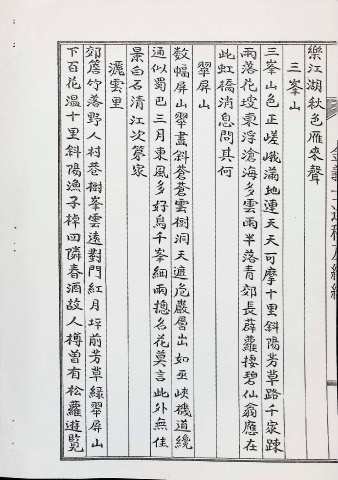 樂江湖秋色雁來聲
三峯山
三峯山色正嵯峨滿地連天天可摩十里斜陽芳草路千家踈
雨落花坡東浮滄海多雲雨半落青郊長薜蘿棲碧仙翁應在
此虹橋消息問其何
翠屏山
数幅屏山翠畫斜蒼蒼雲樹洞天遮危巖層出如巫峽磯道繞
通似蜀巴三月東風多好鳥千峯細雨摠名花莫言此外無佳
景白石清江次第家
灑雲里
郊簷竹落野人村巷樹峯雲遠對門紅月坪前芳草綠翠屏山
下百花溫十里斜陽漁子棹四隣春酒故人樽曾有松蘿遊覽